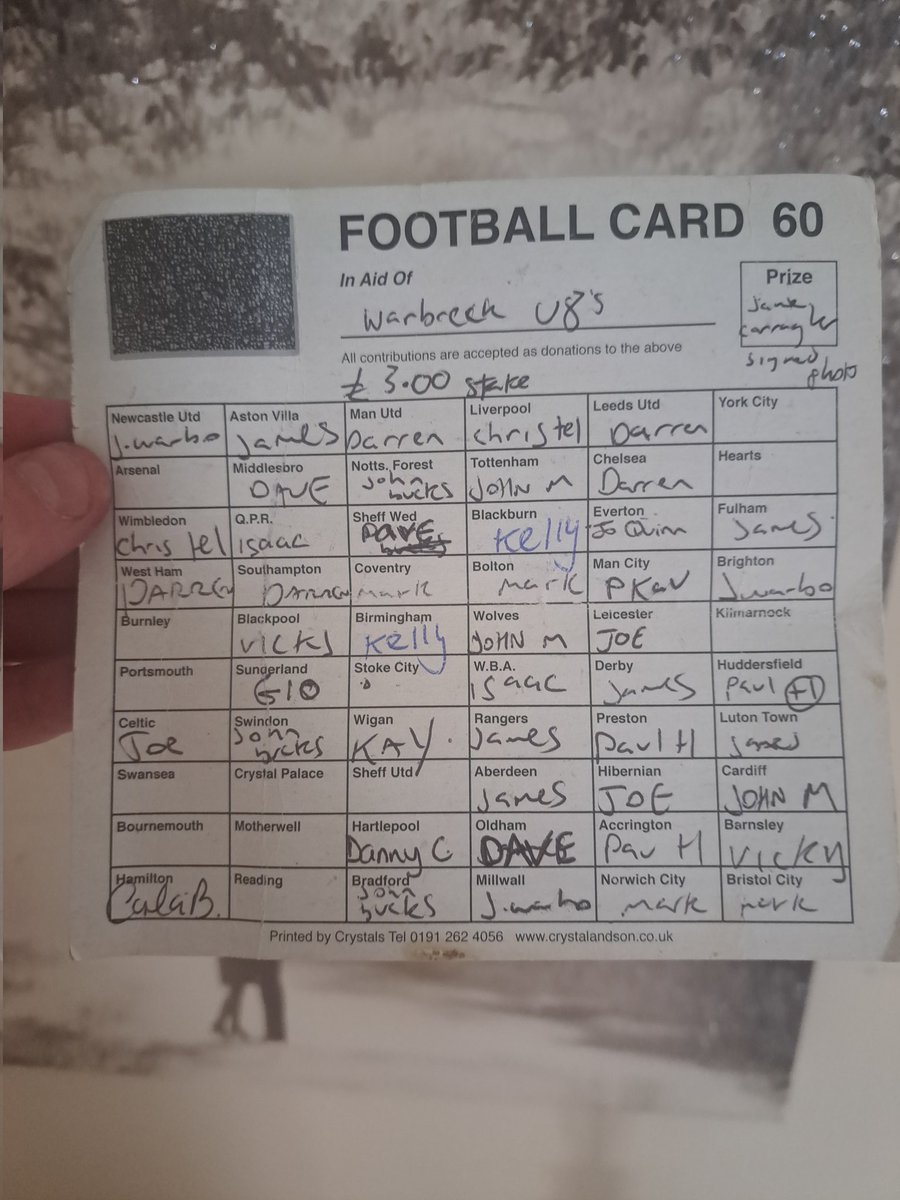 FOOTBALL CARD 60
In Aid Of
Warbreck U8's
Prize
signed
photo
All contributions are accepted as donations to the above
£3.00 stake
Newcastle Utd Aston Villa Man Utd Liverpool Leeds Utd York City
J.warbo James Darren Christel Darren
Arsenal Middlesbro Notts. Forest Tottenham Chelsea Hearts
DAVE John bucks JOHN M Darren
Wimbledon Q.P.R. Sheff Wed Blackburn Everton Fulham
Christel Isaac DAVE Kelly Jo Quinn James
West Ham Southampton Coventry Bolton Man City Brighton
DARREN DARREN mark mark P KAV J.warbo
Burnley Blackpool Birmingham Wolves Leicester Kilmarnock
VICKY Kelly JOHN M JOE
Portsmouth Sunderland Stoke City W.B.A. Derby Huddersfield
GIO ISaac James Paul H
Celtic Swindon Wigan Rangers Preston Luton Town
Joe John bucks KAY. James Paul H James
Swansea Crystal Palace Sheff Utd Aberdeen Hibernian Cardiff
James JOE JOHN M
Bournemouth Motherwell Hartlepool Oldham Accrington Barnsley
Danny C DAVE Pau H VICKY
Hamilton Reading Bradford Millwall Norwich City Bristol City
John bucks J.warbo mark mark
Printed by Crystals Tel 0191 262 4056 www.crystalandson.co.uk